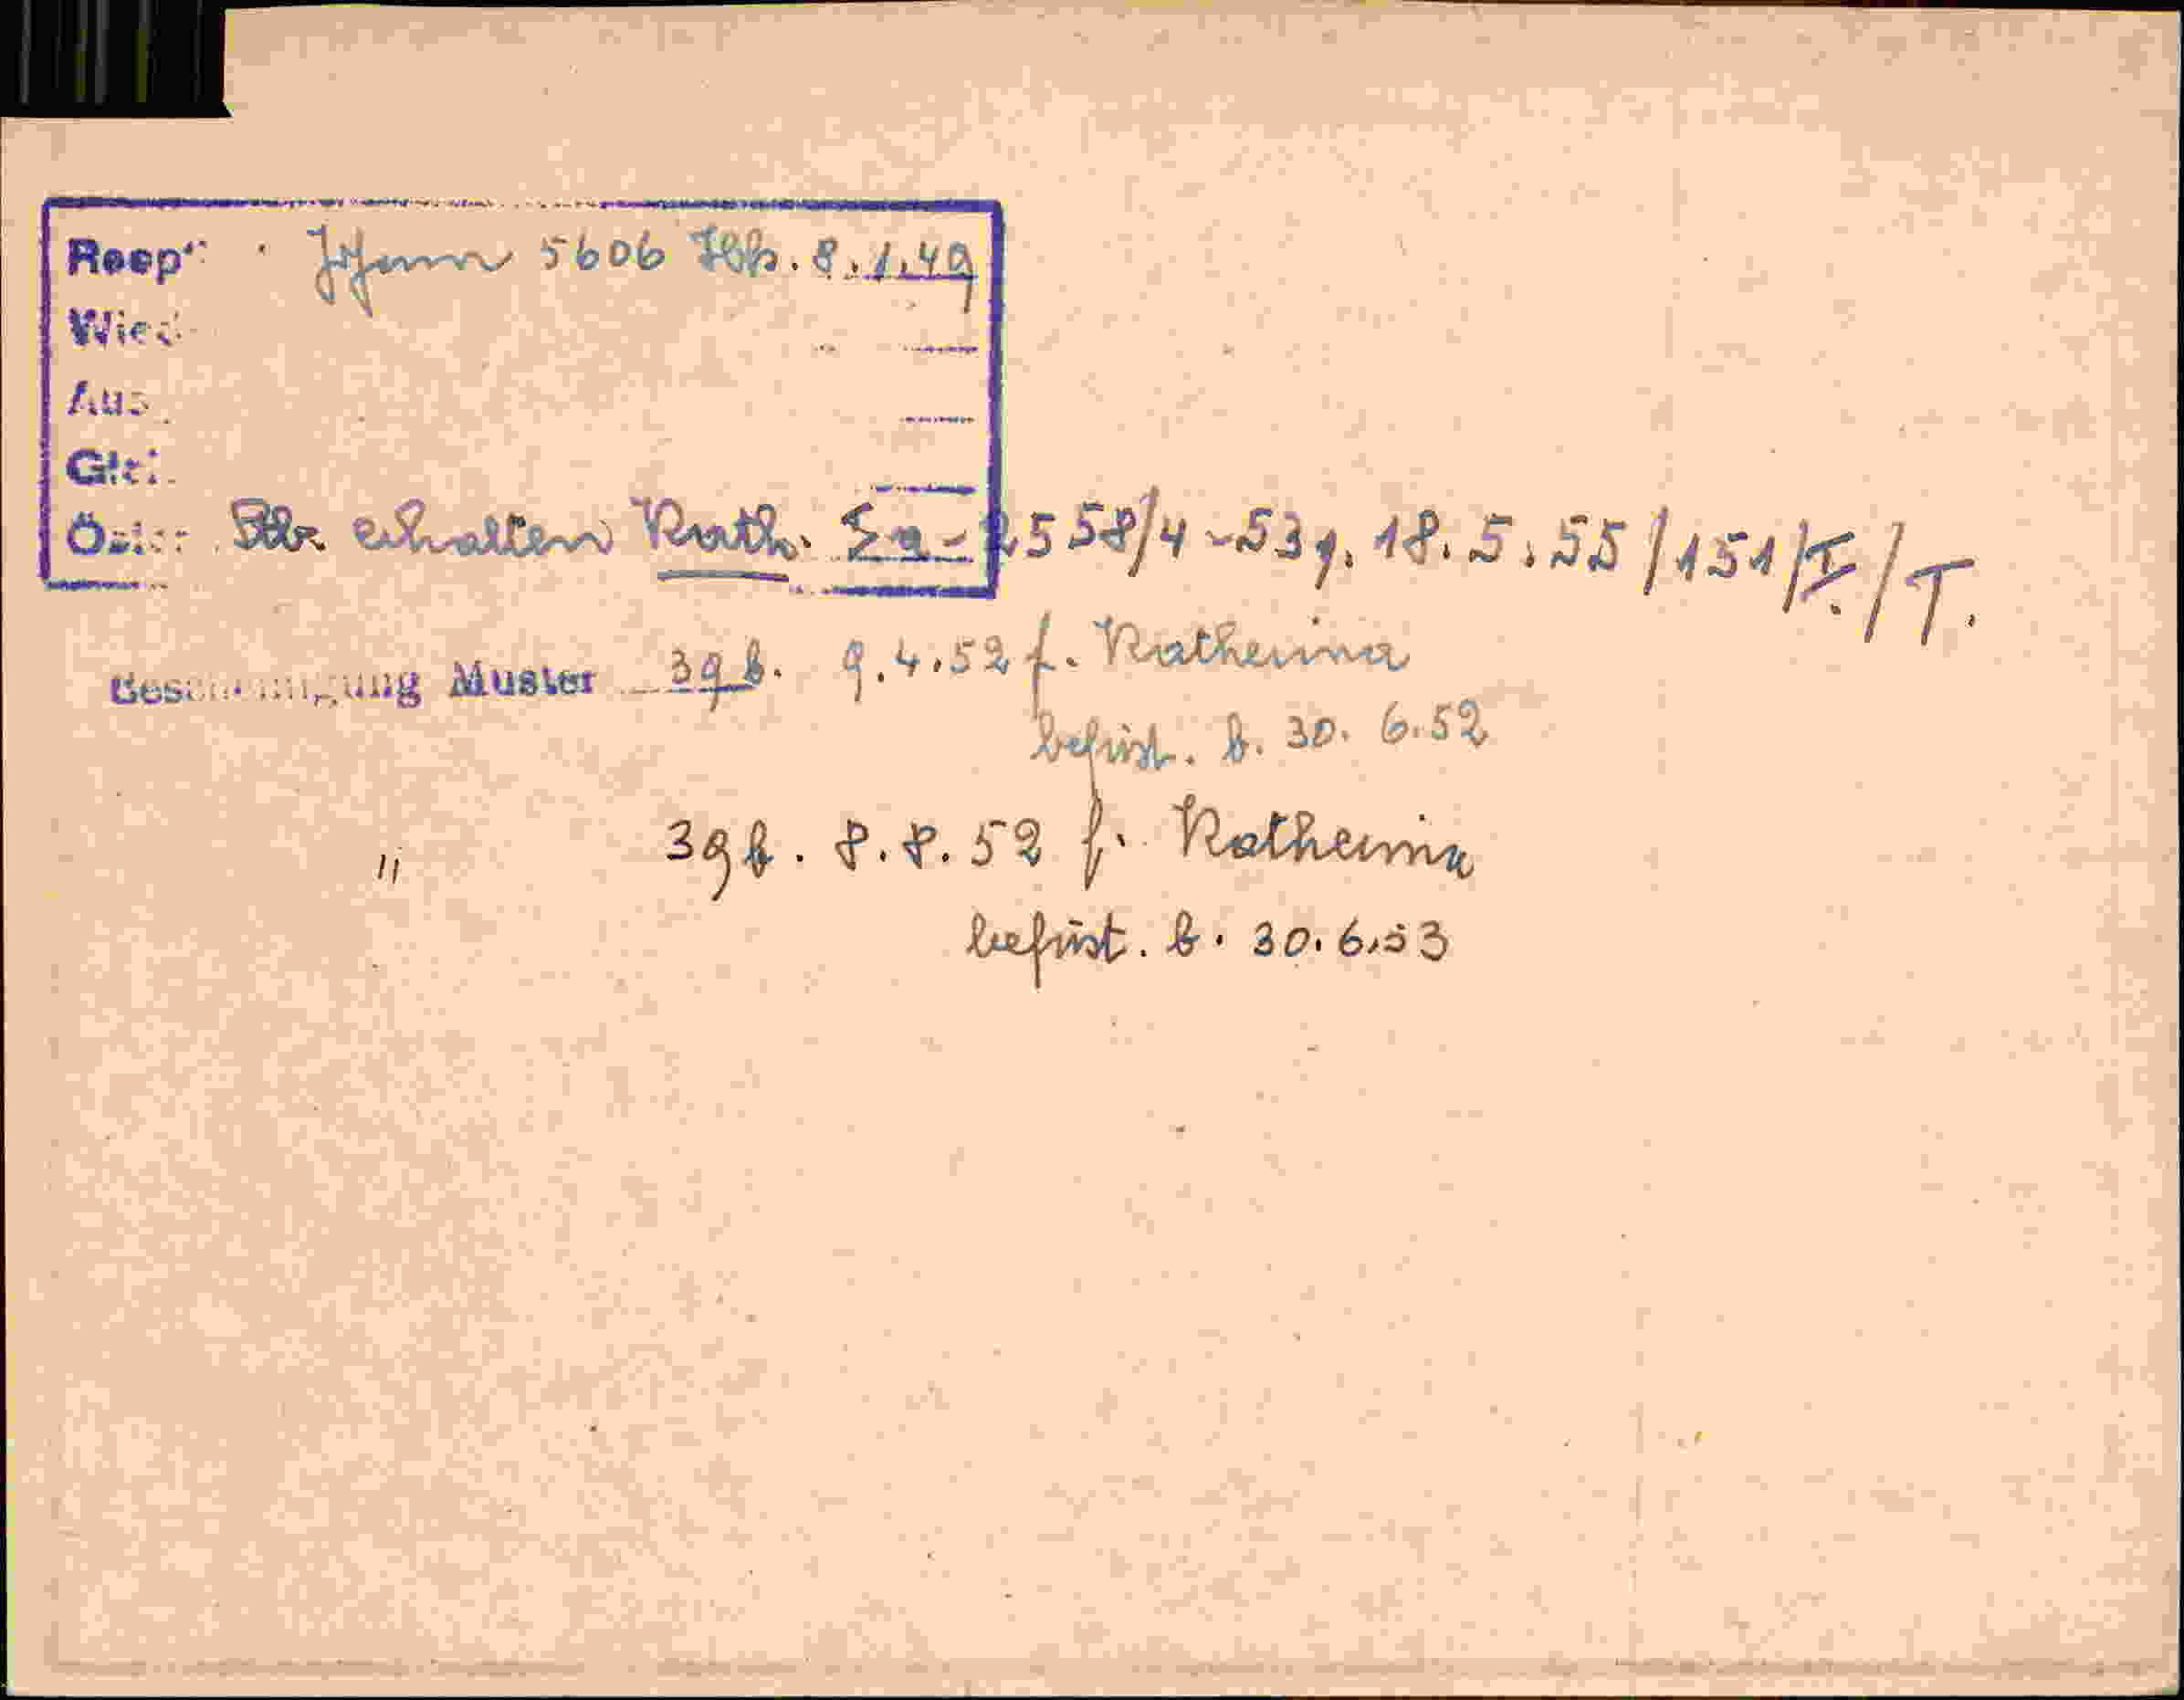 Johann 5606 Hb. 8.1.49
Wied
Aus
Öster Stb. erhalten Kath. 558/4-53 v. 18.5.55/151/I/T.
Bescheinigung Muster 39 b. 9.4.52 f. Katherina
befrist. b. 30.6.52
" 39 b. 8.8.52 f. Katherina
befrist. b. 30.6.53